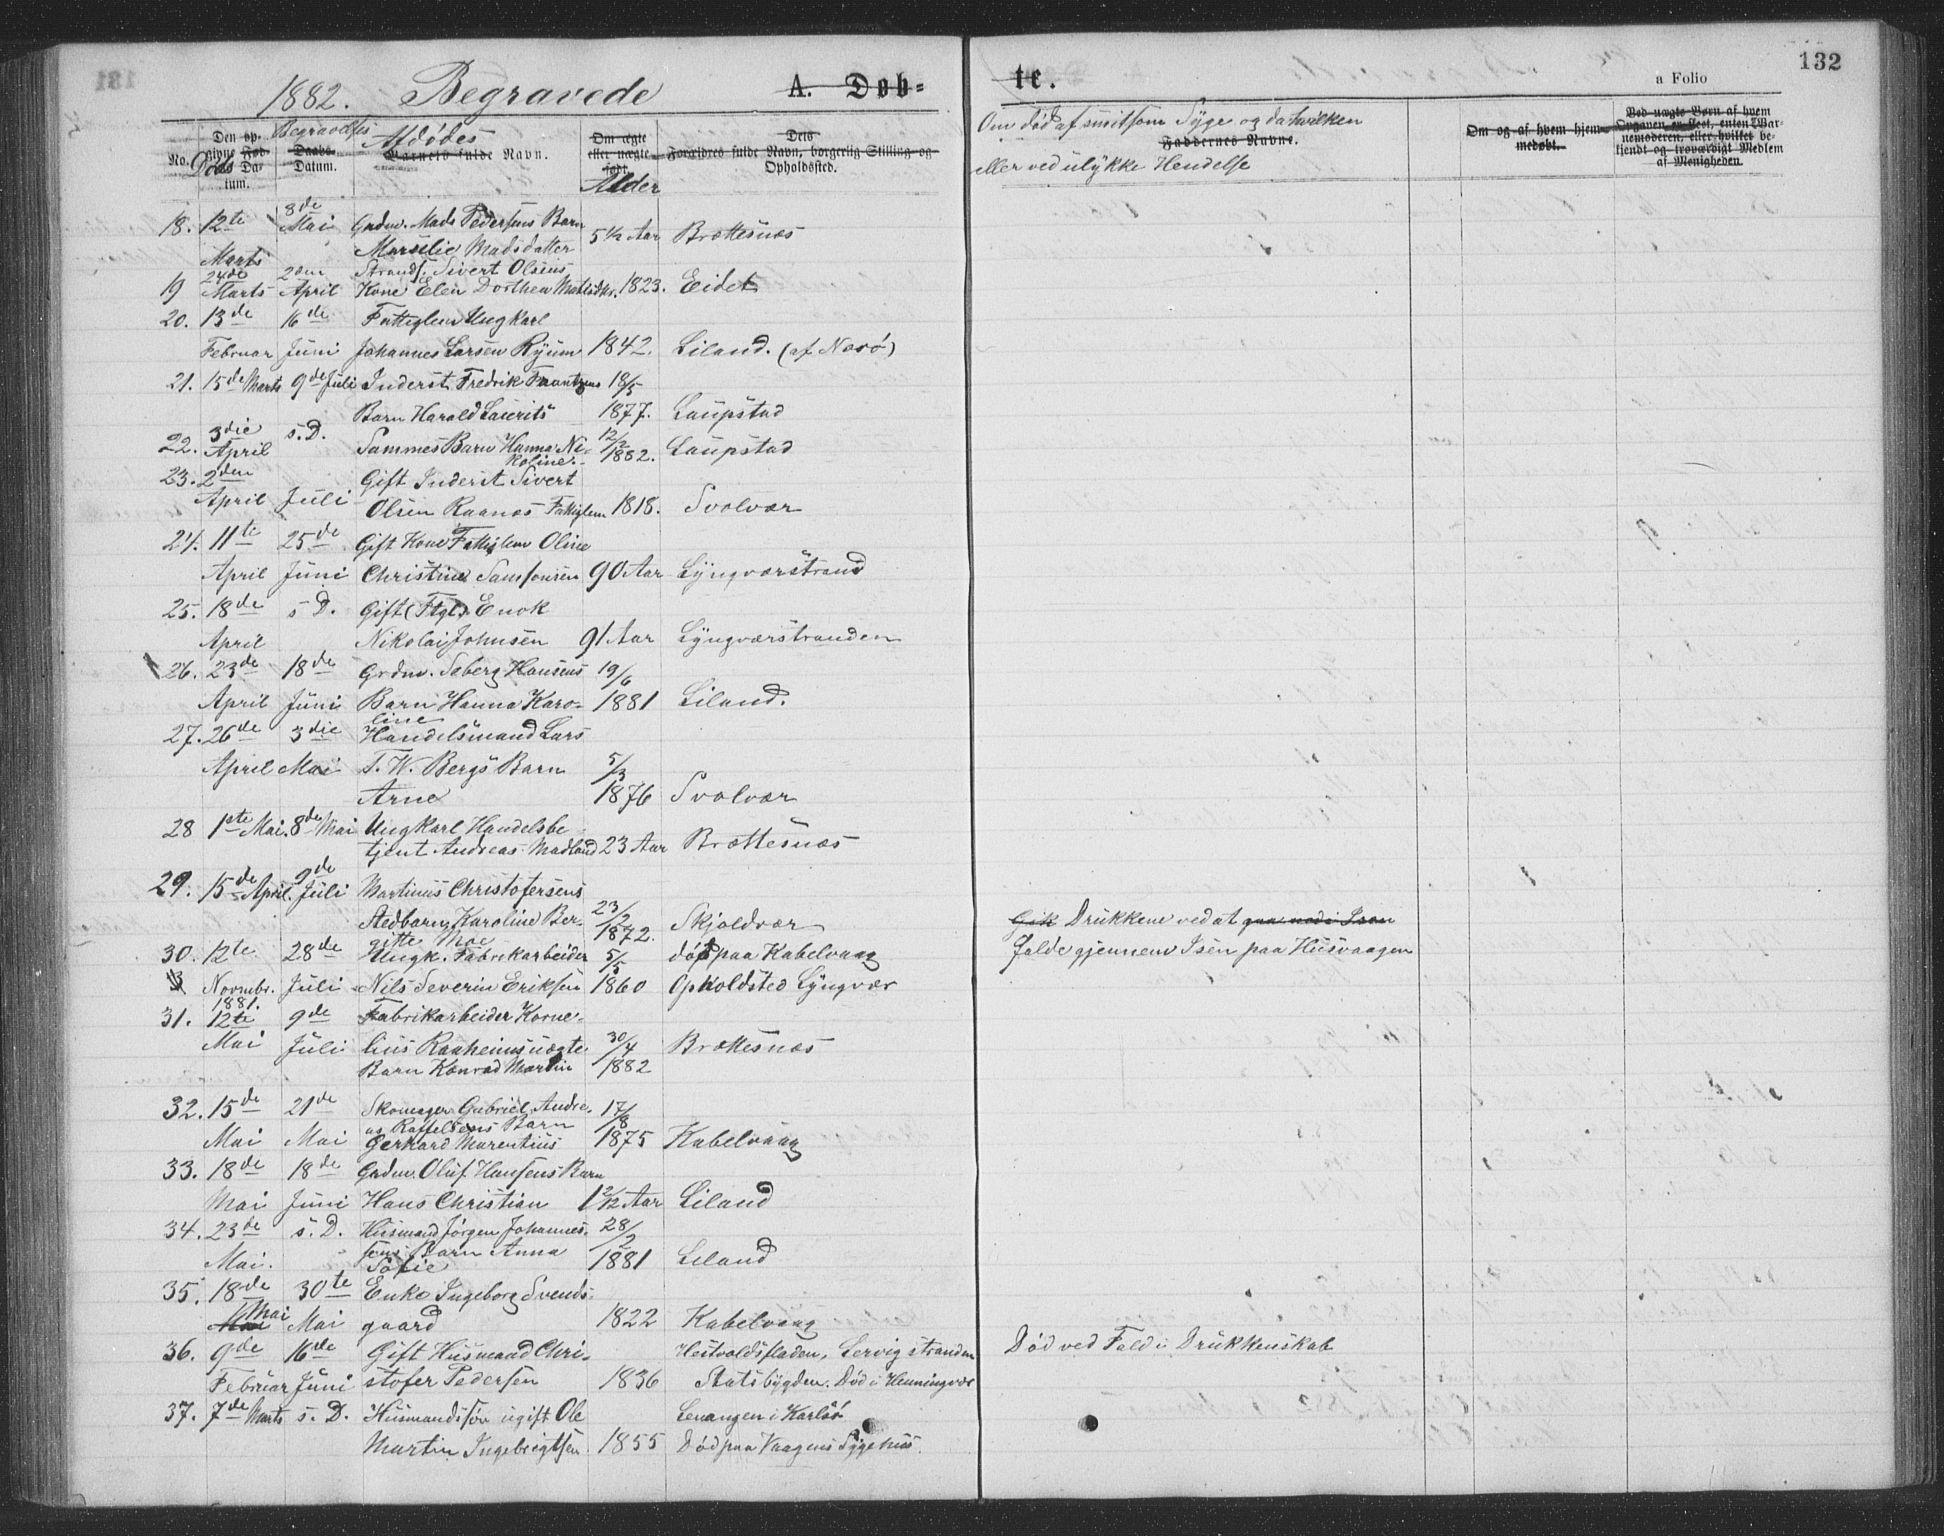 131
132
1882. Begravede A. Døb= te. a Folio
No. Den op- givne Fød- sels Da- tum. Døds
Begravelses Daabs- Datum.
Afdødes Barnets fulde Navn.
Om ægte eller uægte født. Alder
Dets Forældres fulde Navn, borgerlig Stilling og Opholdssted.
Om død af smitsom Syge og da hvilken
Faddernes Navne.
eller ved ulykke Hendelse
Om og af hvem hjem- medøbt.
Ved uægte Børn af hvem Opgaven er skeet, enten Bar- nemoderen, eller hvilket be- kjendt og troværdigt Medlem af Menigheden.
18. 12te 8de Mai Grdm. Mads Pedersens Barn
Marts Marselie Madsdatter 5 1/2 Aar Brettesnæs
24de 2den Strands. Sivert Olsens
19 Marts April Kone Elen Dorthea Matisdtr. 1823. Eidet
20. 13de 16de Fattiglem Ungkarl
Februar Juni Johannes Larsen Ryum 1842. Liland. (af Narø)
21. 15de Marts 9de Juli Inderst Fredrik Frantzens 18/5
Barn Harald Laurits 1877. Laupstad
22. 3die April s. D. Sammes Barn Hanna Ni- 12/2 1882. Laupstad
koline
23. 2den Gift Inderst Sivert
April Juli Olsen Raanas Fattiglem 1818. Svolvær
24. 11te 25de Gift Kone Fattiglem Oline
April Juni Christine Samsonsen 90 Aar Lyngværstrand
25. 18de s D. Gift (Ftgl.) Enok
April Nikolai Johnsen 91 Aar Lyngværstranden
26. 23de 18de Grdm. Seberg Hansens 19/6
April Juni Barn Hanna Karo- 1881 Liland.
line
27. 26de 3die Handelsmand Lars
April Mai T. W. Bergs Barn 5/3
Arne 1876 Svolvær
28 1ste Mai. 8de Mai Ungkarl Handelsbe-
tjent Andreas Madland 23 Aar Brettesnæs
29. 15de April. 9de Juli Martinus Christofersens
Stedbarn Karoline Ber- 23/2 1872. Skjoldvær Gik Drukkene ved at gaa ned i Isen
gitte Moe
30. 12te 28de Ungk. Fabrikarbeider 5/5 død paa Kabelvaag falde gjennem Isen paa Husvaagen
Novmbr. Juli Nils Severin Eriksen 1860 Opholdsted Lyngvær
1881.
31. 12te 9de Fabrikarbeider Korne-
Mai Juli lius Raaheims uægte 30/4 Brettesnæs
Barn Konrad Martin 1882
32. 15de 21de Skomager Gabriel Andre- 17/8
as Raffelsens Barn
Mai Mai Gerhard Marentius 1875 Kabelvaag
33. 18de 18de Grdm. Oluf Hansens Barn
Mai Juni Hans Christian 1 2/12 Aar Liland
34. 23de s. D. Husmand Jørgen Johannes- 28/2
Mai. sens Barn Anna 1881 Liland
Sofie
35. 18de 30te Enke Ingeborg Svends-
Mai Mai gaard 1822 Kabelvaag
36. 9de 16de Gift Husmand Chri- Hestvoldsfladen, Lervigstranden Død ved Fald i Drukkenskab
Februar Juni stofer Pedersen 1836 Statsbygden. Død i Henningvær
37. 7de Marts s. D. Husmandssøn ugift Ole Lenangen i Karlsø
Martin Ingebrigtsen 1855 Død paa Vaagens Sygehus.